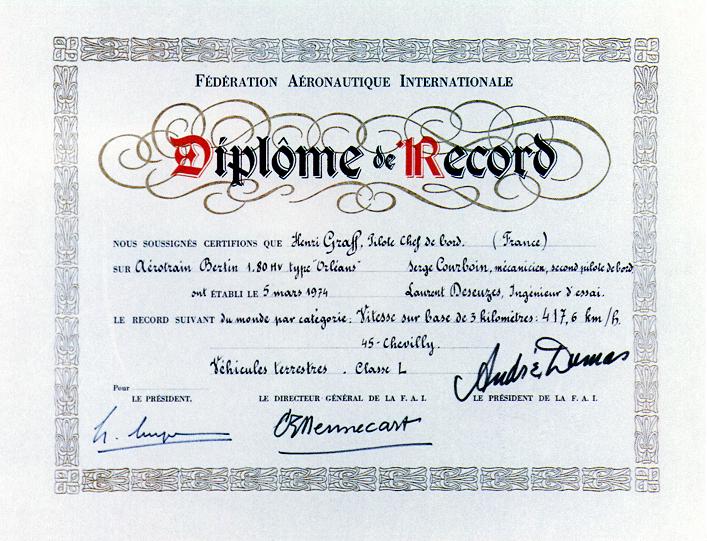 FÉDÉRATION AÉRONAUTIQUE INTERNATIONALE
Diplôme de Record
NOUS SOUSSIGNÉS CERTIFIONS QUE Henri Graff, Pilote Chef de bord. (France)
SUR Aérotrain Bertin 1.80 HV type "Orléans" Serge Courboin, mécanicien, second pilote de bord
ont ÉTABLI LE 5 mars 1974 Laurent Deseuzes, Ingénieur d'essai.
LE RECORD SUIVANT du monde par catégorie: Vitesse sur base de 3 kilomètres: 417,6 km/h.
45-Chevilly.
Véhicules terrestres. Classe L
André Dumas
Pour
LE PRÉSIDENT. LE DIRECTEUR GÉNÉRAL DE LA F. A. I. LE PRÉSIDENT DE LA F. A. I.
Hennecart